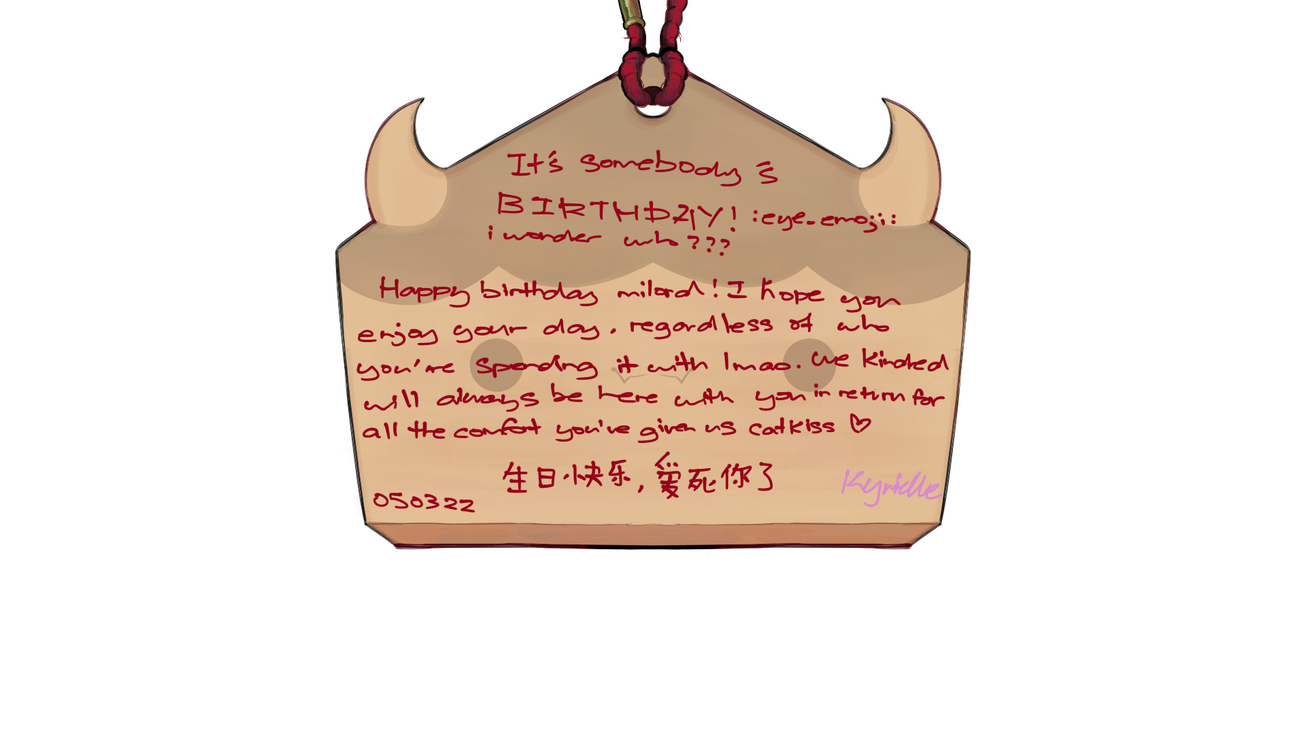 It's somebody's
BIRTHDAY! :eye_emoji:
i wonder who???
Happy birthday milord! I hope you
enjoy your day, regardless of who
you're spending it with lmao. We kindred
will always be here with you in return for
all the comfort you've given us catkiss ♡
生日快乐,爱死你了
050322
Kyrielle